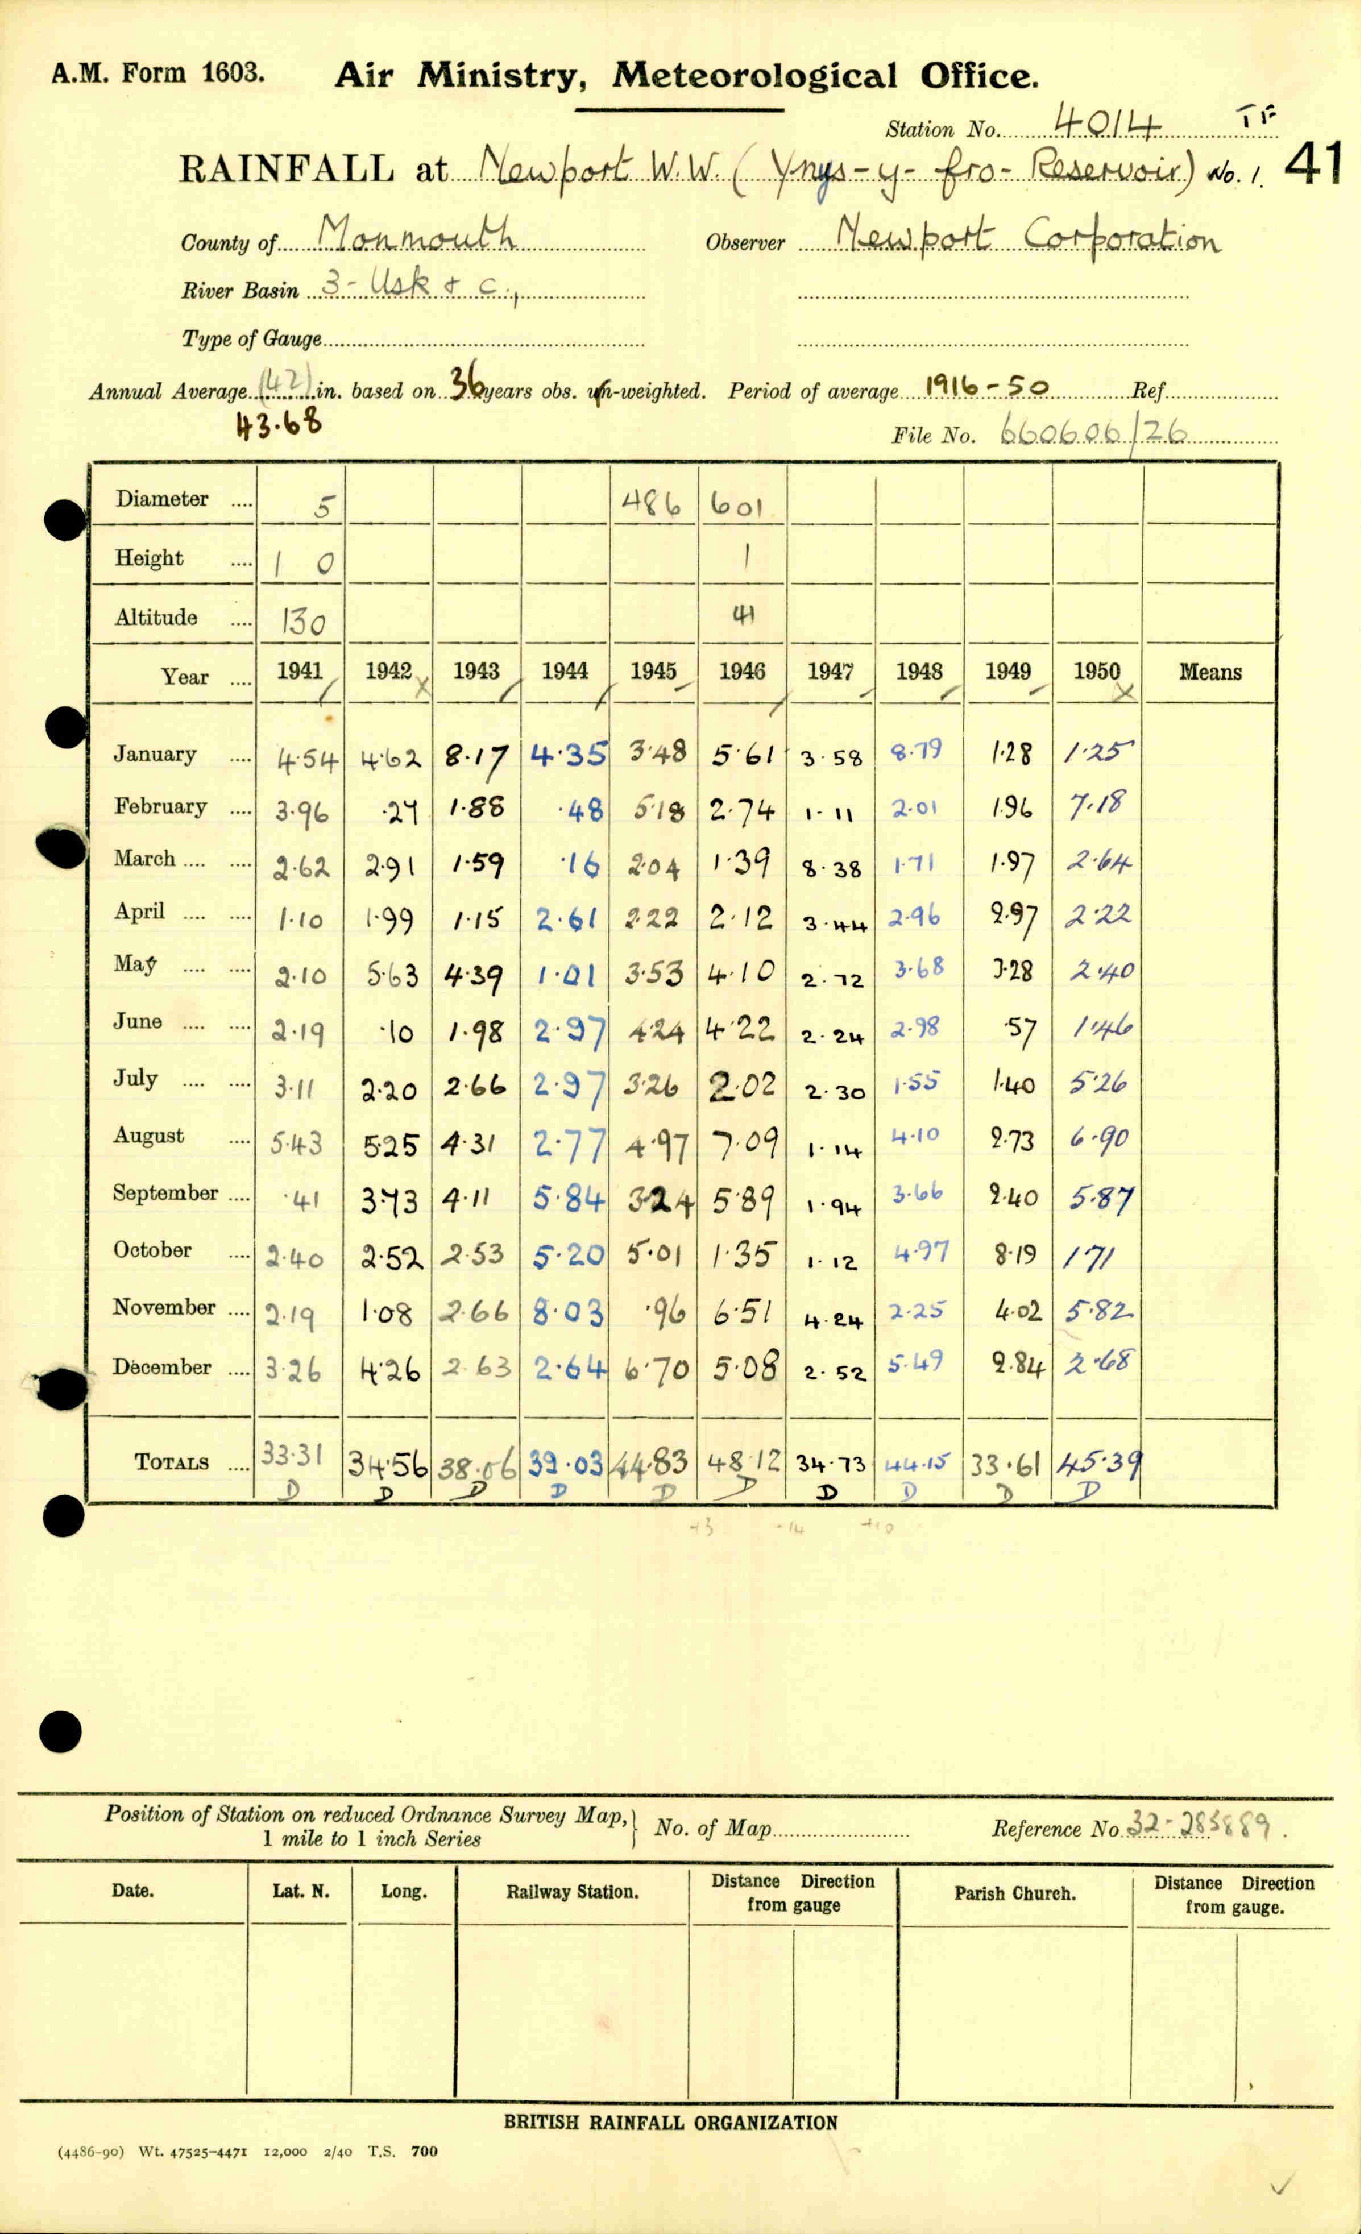 A.M. Form 1603. Air Ministry, Meteorological Office.
Station No. 4014 TF
RAINFALL at Newport W.W. (Ynys-y-fro-Reservoir) No. 1. 41
County of Monmouth Observer Newport Corporation
River Basin 3- Usk & c.,
Type of Gauge
Annual Average (42) in. based on 36 years obs. un-weighted. Period of average 1916-50 Ref.
43.68
File No. 660606/26
Diameter .... 5 486 601
Height .... 1 0 1
Altitude .... 130 41
Year .... 1941 1942 1943 1944 1945 1946 1947 1948 1949 1950 Means
January .... 4.54 4.62 8.17 4.35 3.48 5.61 3.58 8.79 1.28 1.25
February .... 3.96 .27 1.88 .48 5.18 2.74 1.11 2.01 1.96 7.18
March .... .... 2.62 2.91 1.59 .16 2.04 1.39 8.38 1.71 1.97 2.64
April .... .... 1.10 1.99 1.15 2.61 2.22 2.12 3.44 2.96 2.97 2.22
May .... .... 2.10 5.63 4.39 1.01 3.53 4.10 2.72 3.68 3.28 2.40
June .... .... 2.19 .10 1.98 2.97 4.24 4.22 2.24 2.98 .57 1.46
July .... .... 3.11 2.20 2.66 2.97 3.26 2.02 2.30 1.55 1.40 5.26
August .... 5.43 5.25 4.31 2.77 4.97 7.09 1.14 4.10 2.73 6.90
September .... .41 3.73 4.11 5.84 3.24 5.89 1.94 3.66 2.40 5.87
October .... 2.40 2.52 2.53 5.20 5.01 1.35 1.12 4.97 8.19 1.71
November .... 2.19 1.08 2.66 8.03 .96 6.51 4.24 2.25 4.02 5.82
December .... 3.26 4.26 2.63 2.64 6.70 5.08 2.52 5.49 2.84 2.68
TOTALS .... 33.31 34.56 38.06 39.03 44.83 48.12 34.73 44.15 33.61 45.39
D D D D D D D D D D
+3 -14 +10
Position of Station on reduced Ordnance Survey Map, No. of Map Reference No. 32-283889.
1 mile to 1 inch Series
Date. Lat. N. Long. Railway Station. Distance Direction from gauge Parish Church. Distance Direction from gauge.
BRITISH RAINFALL ORGANIZATION
(4486-90) Wt. 47525-4471 12,000 2/40 T.S. 700